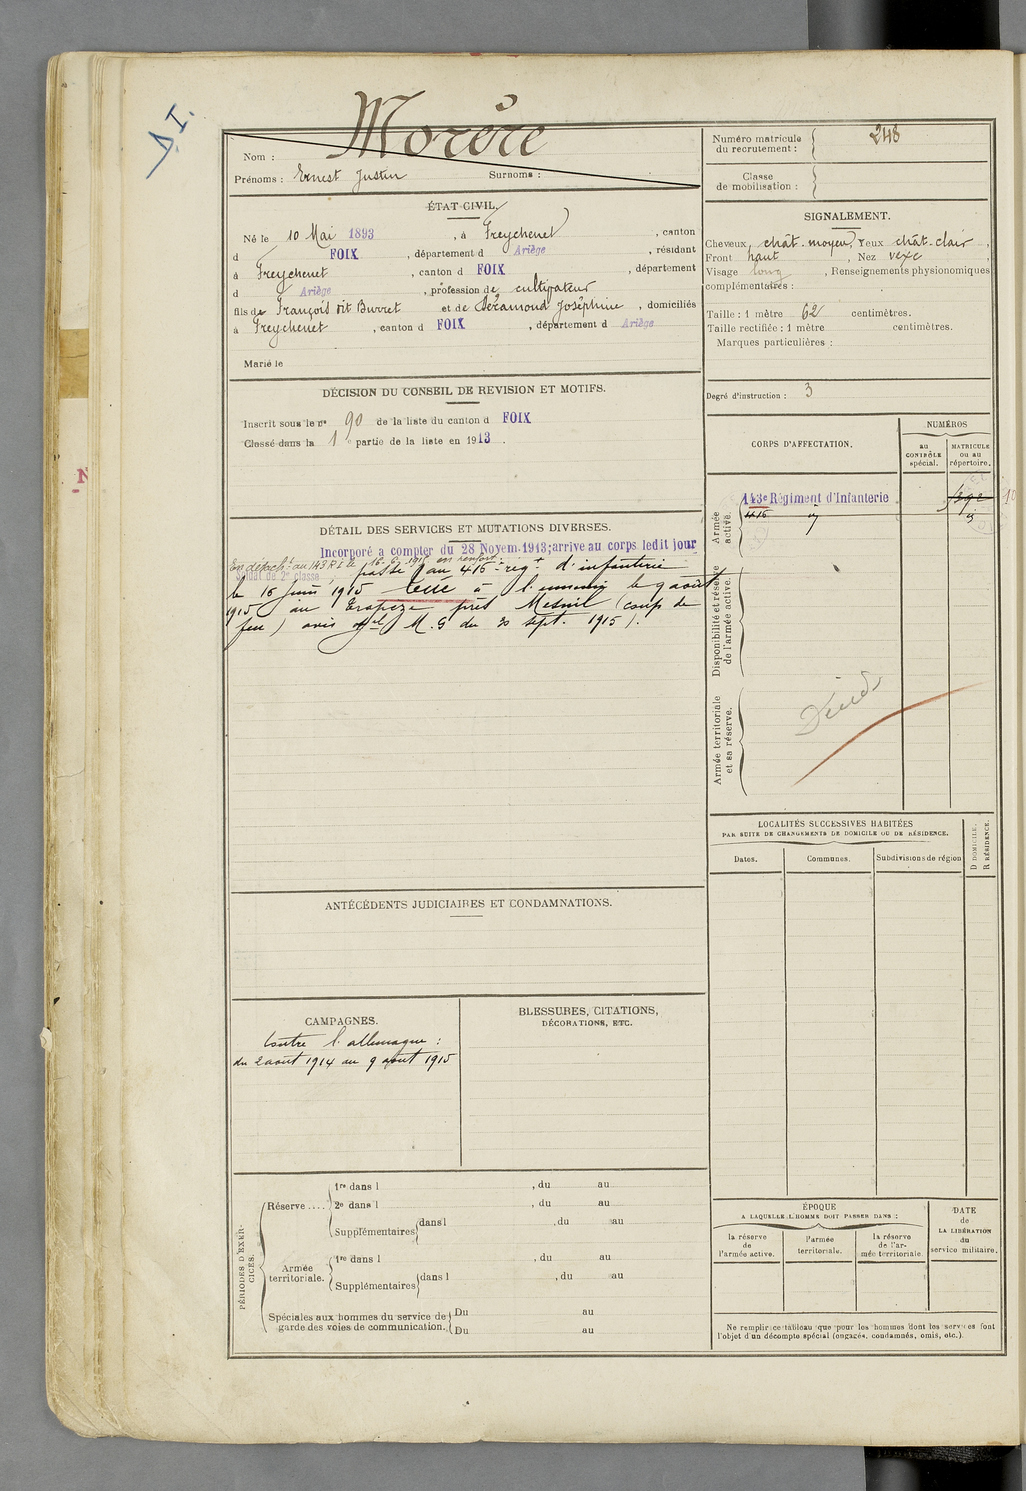 Morère
Nom :
Prénoms : Ernest Justin Surnoms :
Numéro matricule du recrutement : 248
Classe de mobilisation :
ÉTAT CIVIL.
Né le 10 Mai 1893, à Freychenet, canton
d FOIX, département d Ariège, résidant
à Freychenet, canton d FOIX, département
d Ariège, profession de cultivateur
fils de François dit Burret et de Déramond Joséphine, domiciliés
à Freychenet, canton d FOIX, département d Ariège
Marié le
SIGNALEMENT.
Cheveux chât-moyen, Yeux chât-clair,
Front haut, Nez vexe,
Visage long, Renseignements physionomiques
complémentaires :
Taille : 1 mètre 62 centimètres.
Taille rectifiée : 1 mètre centimètres.
Marques particulières :
Degré d'instruction : 3
DÉCISION DU CONSEIL DE REVISION ET MOTIFS.
Inscrit sous le no 90 de la liste du canton d FOIX
Classé dans la 1e partie de la liste en 1913.
CORPS D'AFFECTATION.
NUMÉROS
au CONTRÔLE spécial.
MATRICULE ou au répertoire.
Armée active.
143e Régiment d'Infanterie
416 "
Disponibilité et réserve de l'armée active.
Armée territoriale et sa réserve.
DÉTAIL DES SERVICES ET MUTATIONS DIVERSES.
Incorporé a compter du 28 Novem.1913; arrive au corps ledit jour
Soldat de 2e classe
passé au 416e régt d'infanterie
le 16 juin 1915 tué à l'ennemi le 9 août
1915 au Trapèze près Mesnil (coup de
feu) avis off.el M.G du 20 sept. 1915).
LOCALITÉS SUCCESSIVES HABITÉES
PAR SUITE DE CHANGEMENTS DE DOMICILE OU DE RÉSIDENCE.
Dates.
Communes.
Subdivisions de région
D DOMICILE.
R RÉSIDENCE.
ANTÉCÉDENTS JUDICIAIRES ET CONDAMNATIONS.
CAMPAGNES.
Contre l'allemagne :
du 2 août 1914 au 9 août 1915
BLESSURES, CITATIONS,
DÉCORATIONS, ETC.
PÉRIODES D'EXERCICES.
Réserve....
1re dans l , du au
2e dans l , du au
Supplémentaires dans l , du au
Armée territoriale.
1re dans l , du au
Supplémentaires dans l , du au
Spéciales aux hommes du service de garde des voies de communication.
Du au
Du au
ÉPOQUE
A LAQUELLE L'HOMME DOIT PASSER DANS :
la réserve de l'armée active.
l'armée territoriale.
la réserve de l'armée territoriale.
DATE de LA LIBÉRATION du service militaire.
Ne remplir ce tableau que pour les hommes dont les services font
l'objet d'un décompte spécial (engagés, condamnés, omis, etc.).